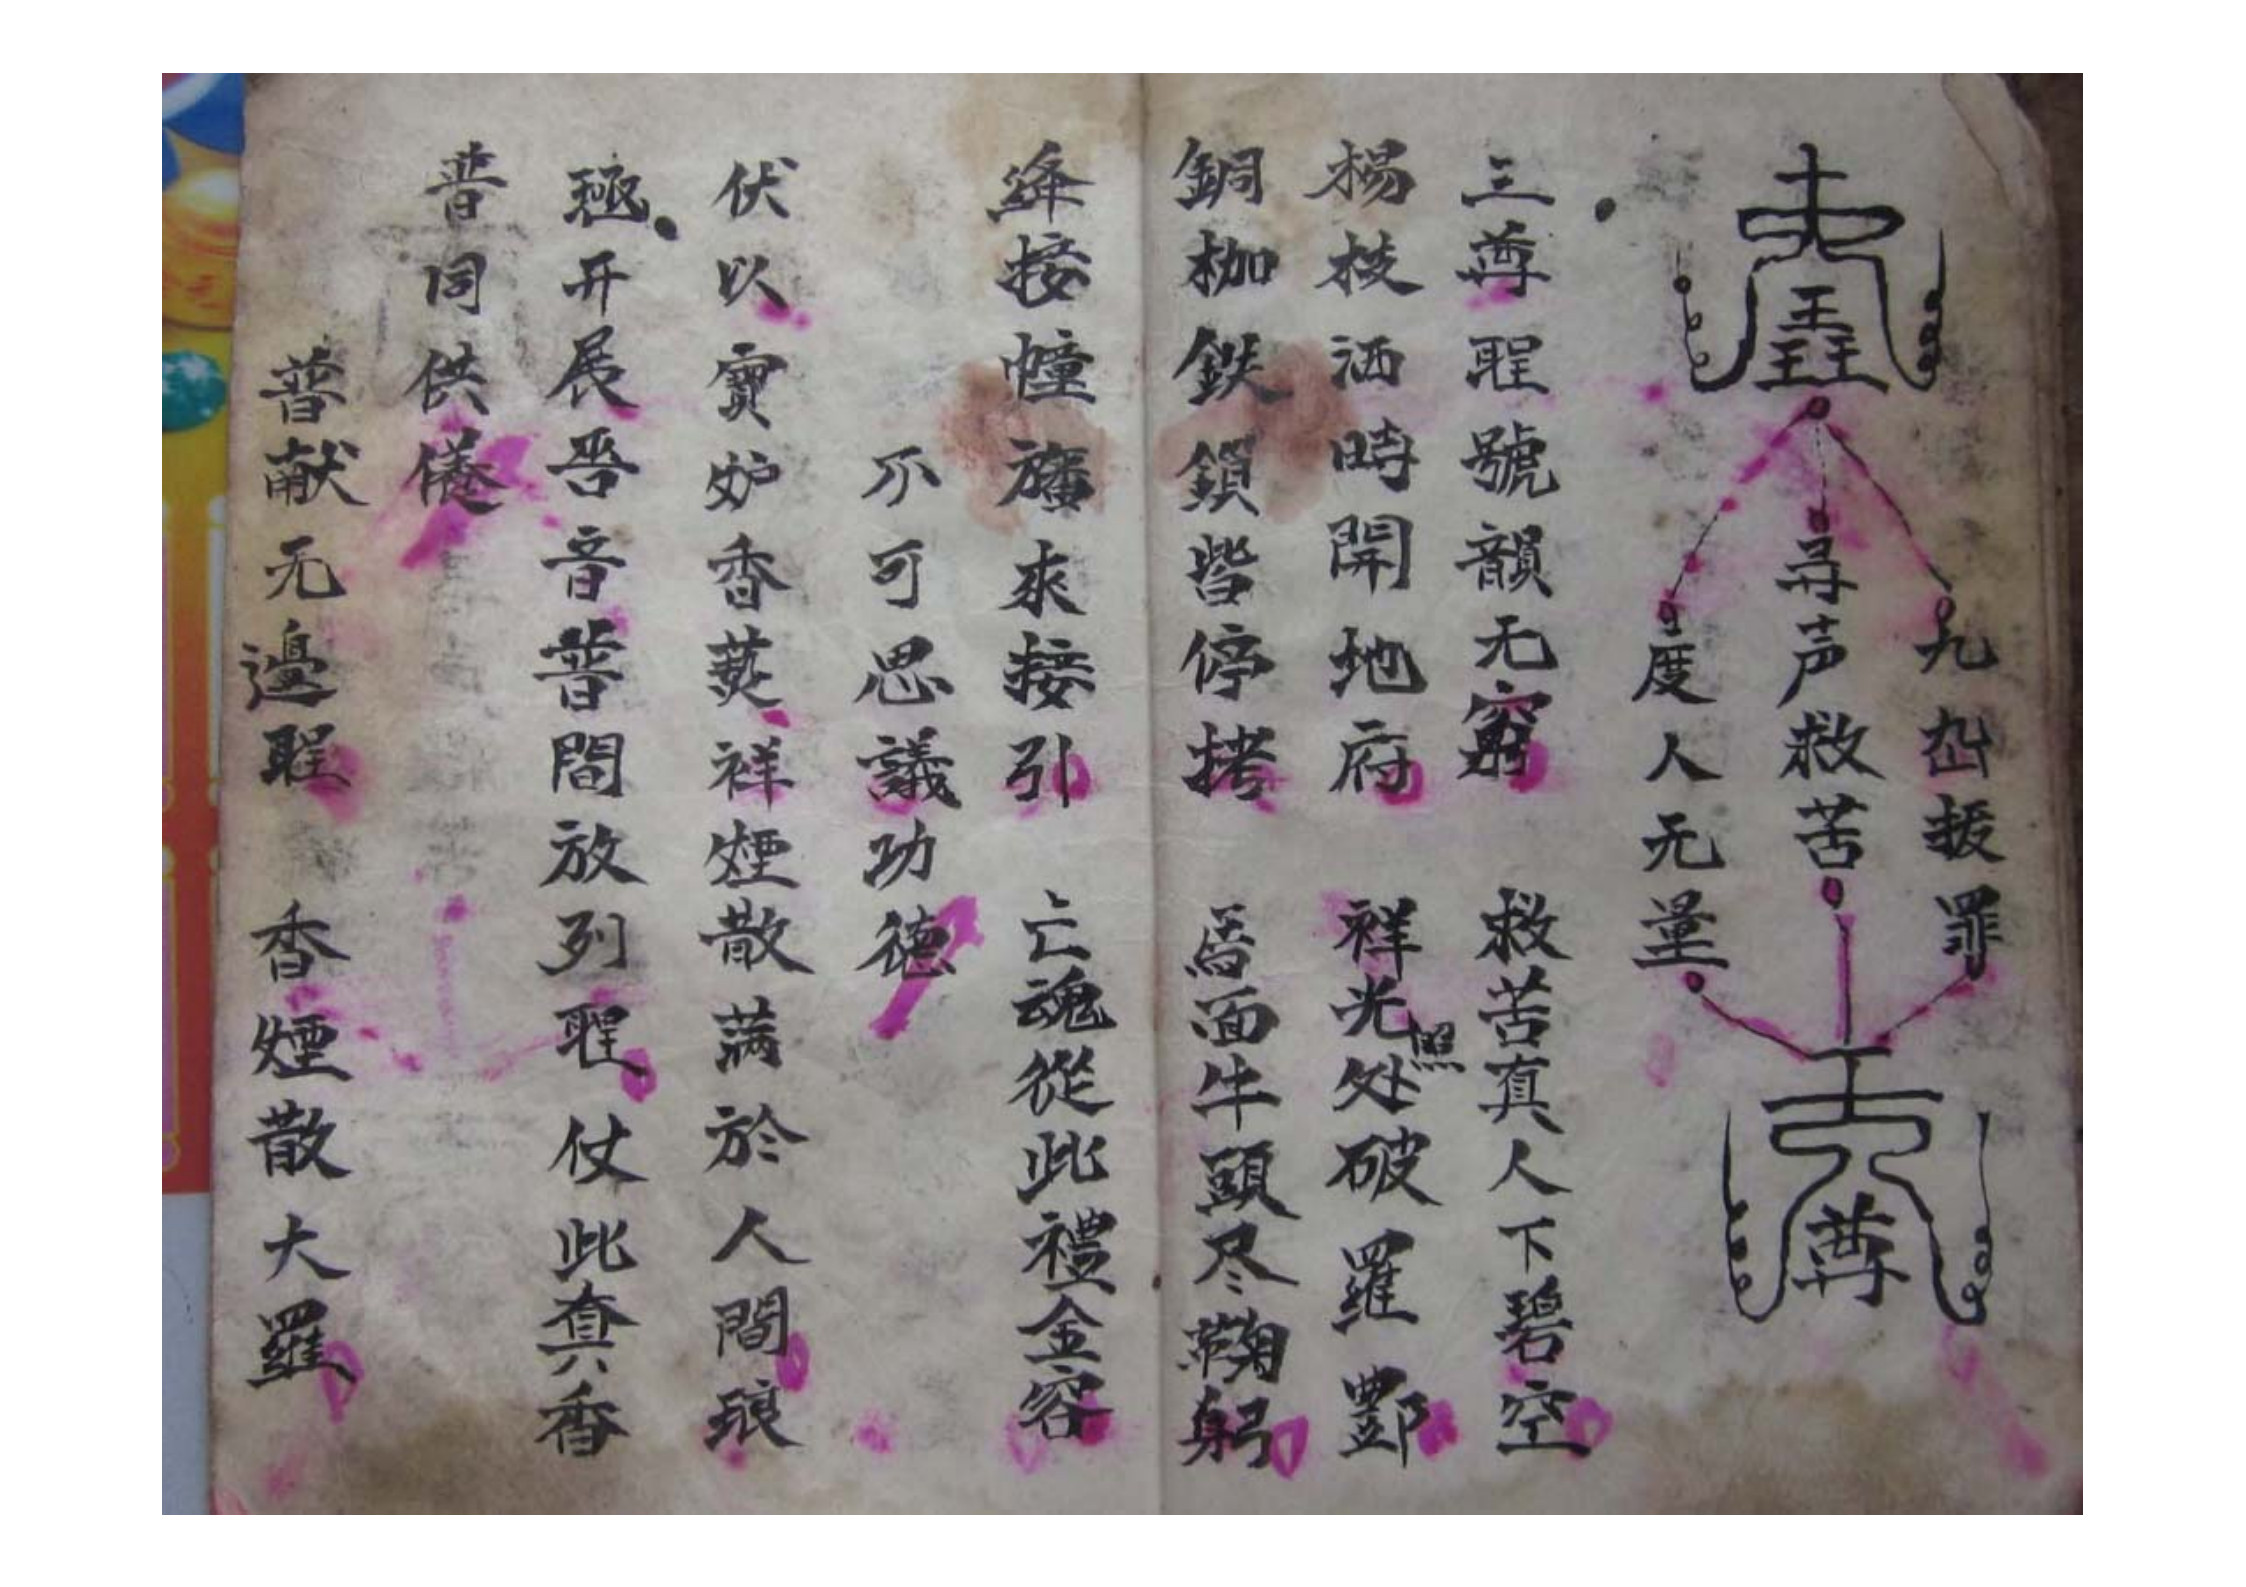 九幽拔罪
尋声救苦
度人无量
尊
三尊聖號韻无窮 救苦真人下碧空
楊枝洒時開地府 祥光照处破羅酆
銅枷鉄鎖皆停拷 馬面牛頭尽鞠躬
絳接幢旛來接引 亡魂從此禮金容
不可思議功德
伏以寶炉香爇祥煙散滿於人間琅
函开展吾音普間放列聖仗此真香
普同供養
普献无邉聖 香煙散大羅